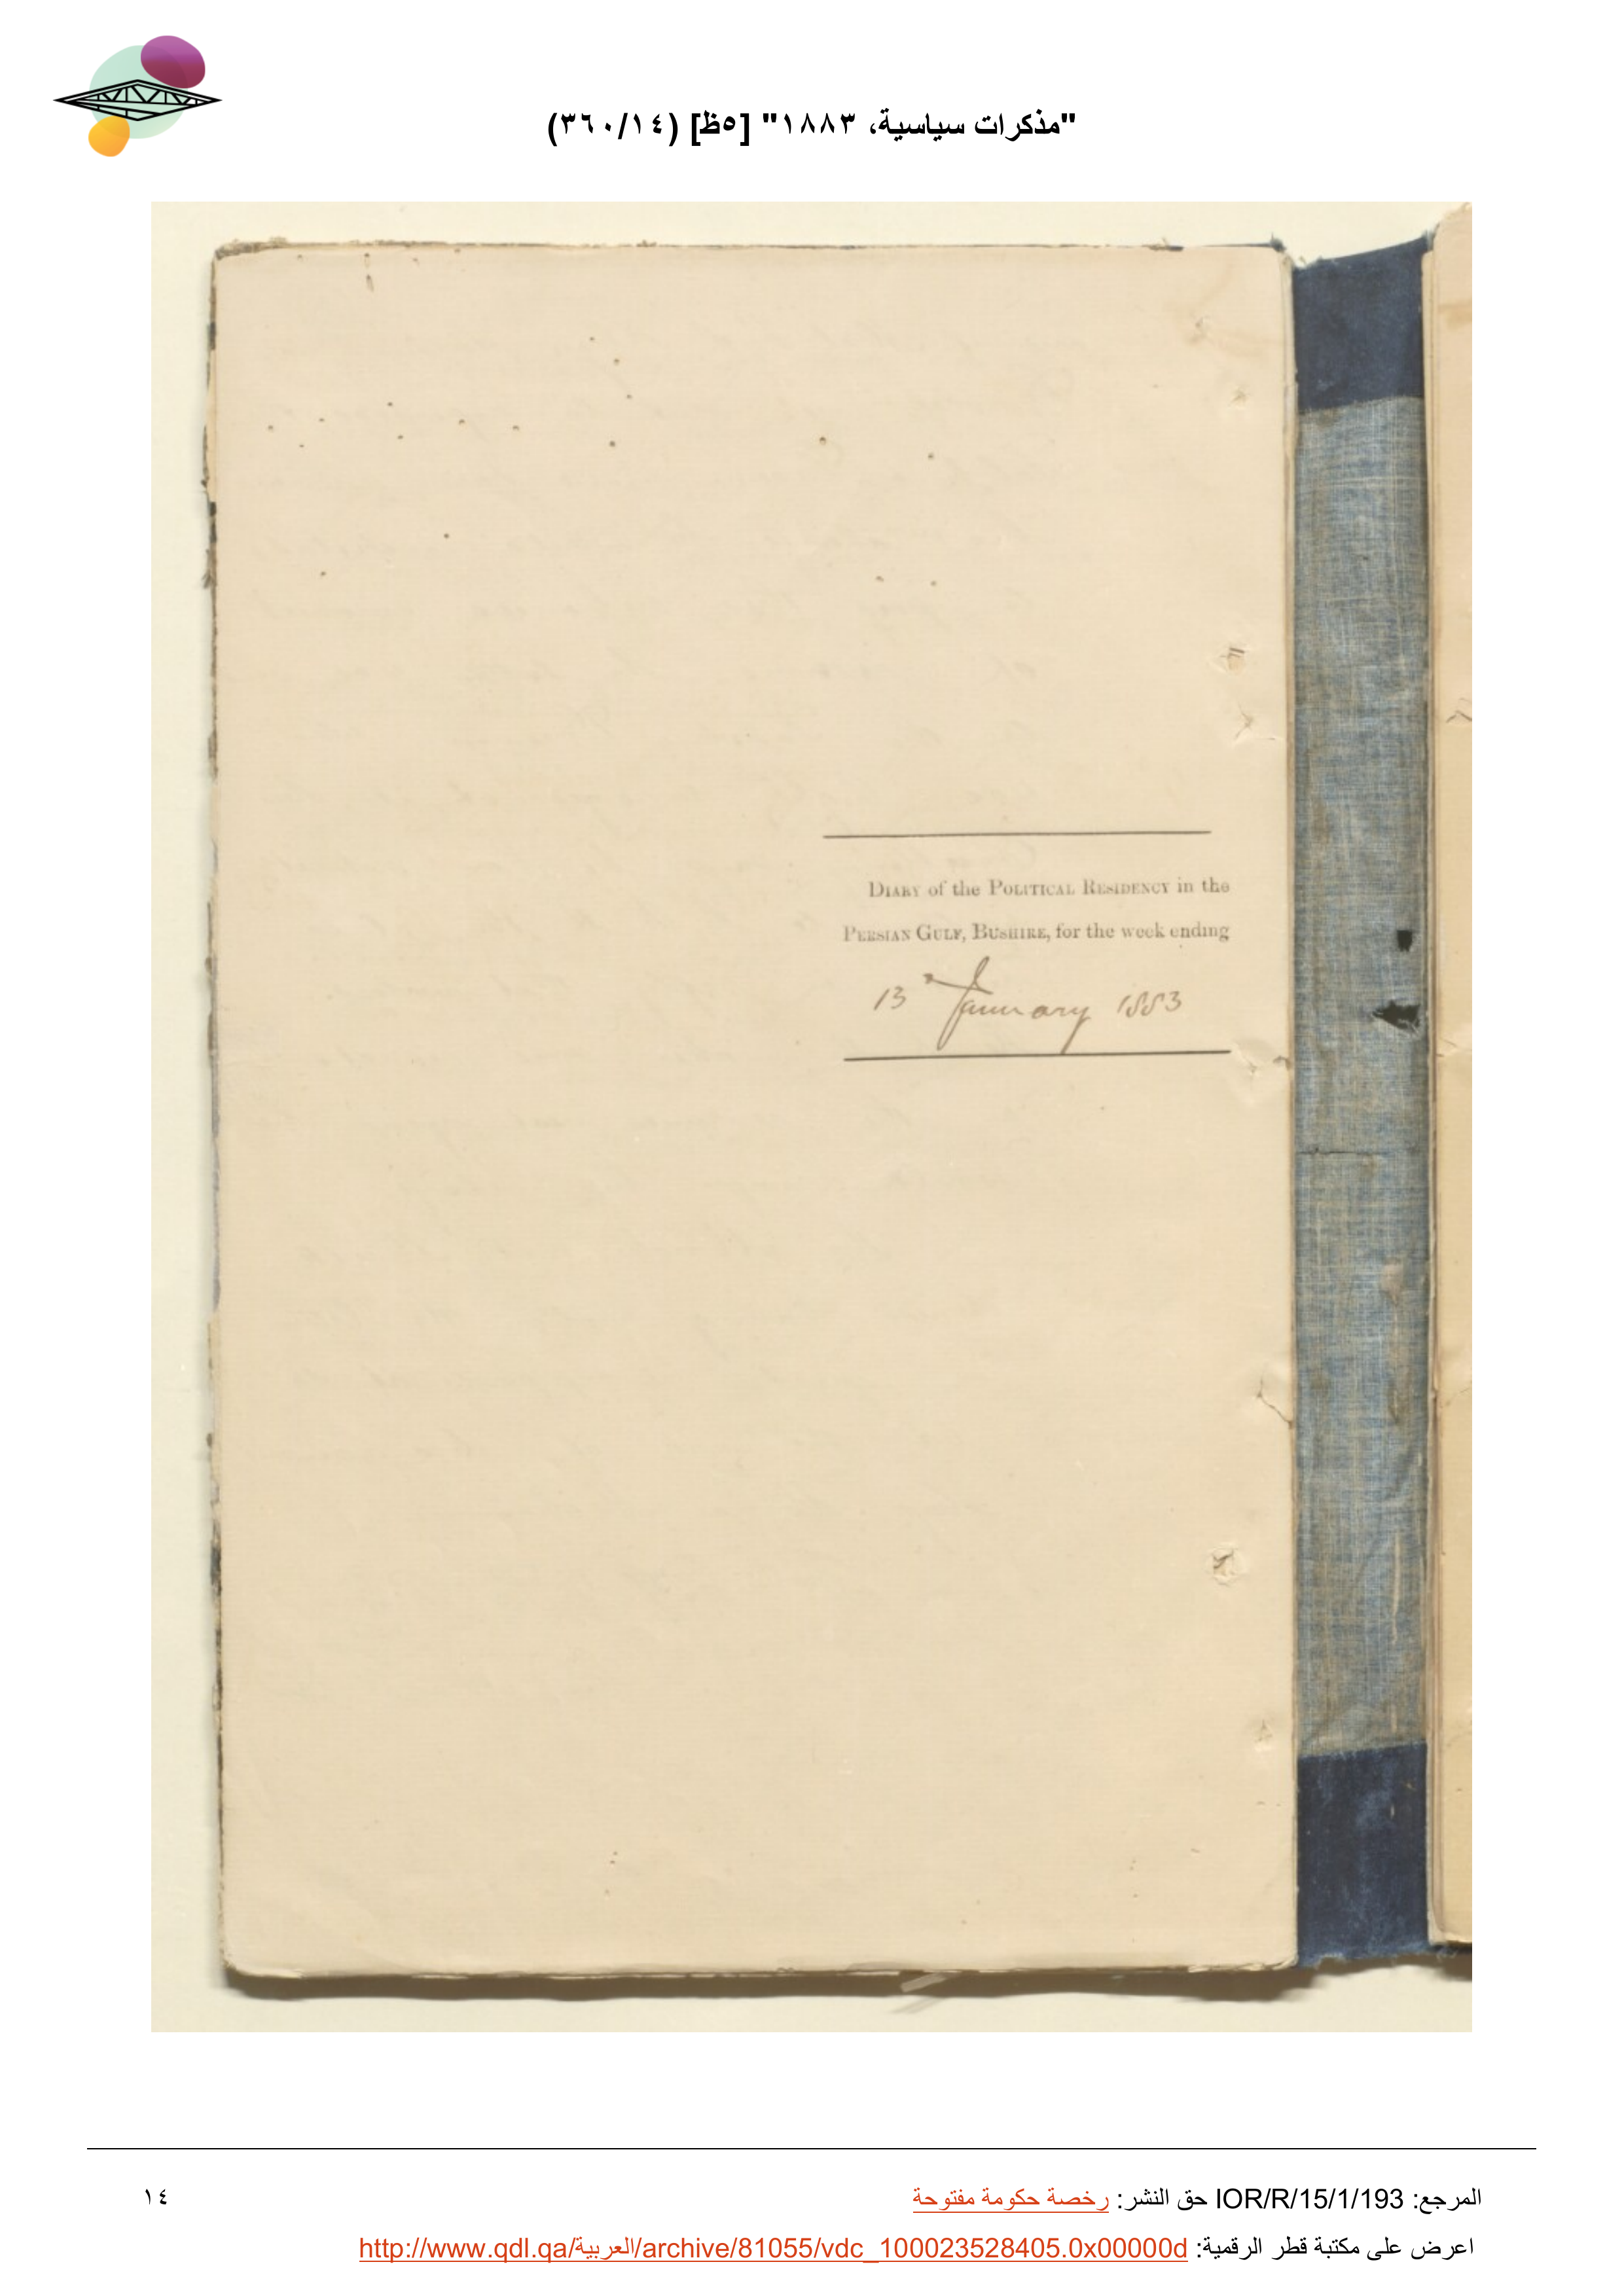 "مذكرات سياسية، ١٨٨٣" [٥ظ] (٣٦٠/١٤)
DIARY of the POLITICAL RESIDENCY in the
PERSIAN GULF, BUSHIRE, for the week ending
13 January 1883
المرجع: IOR/R/15/1/193 حق النشر: رخصة حكومة مفتوحة
١٤
اعرض على مكتبة قطر الرقمية: http://www.qdl.qa/العربية/archive/81055/vdc_100023528405.0x00000d